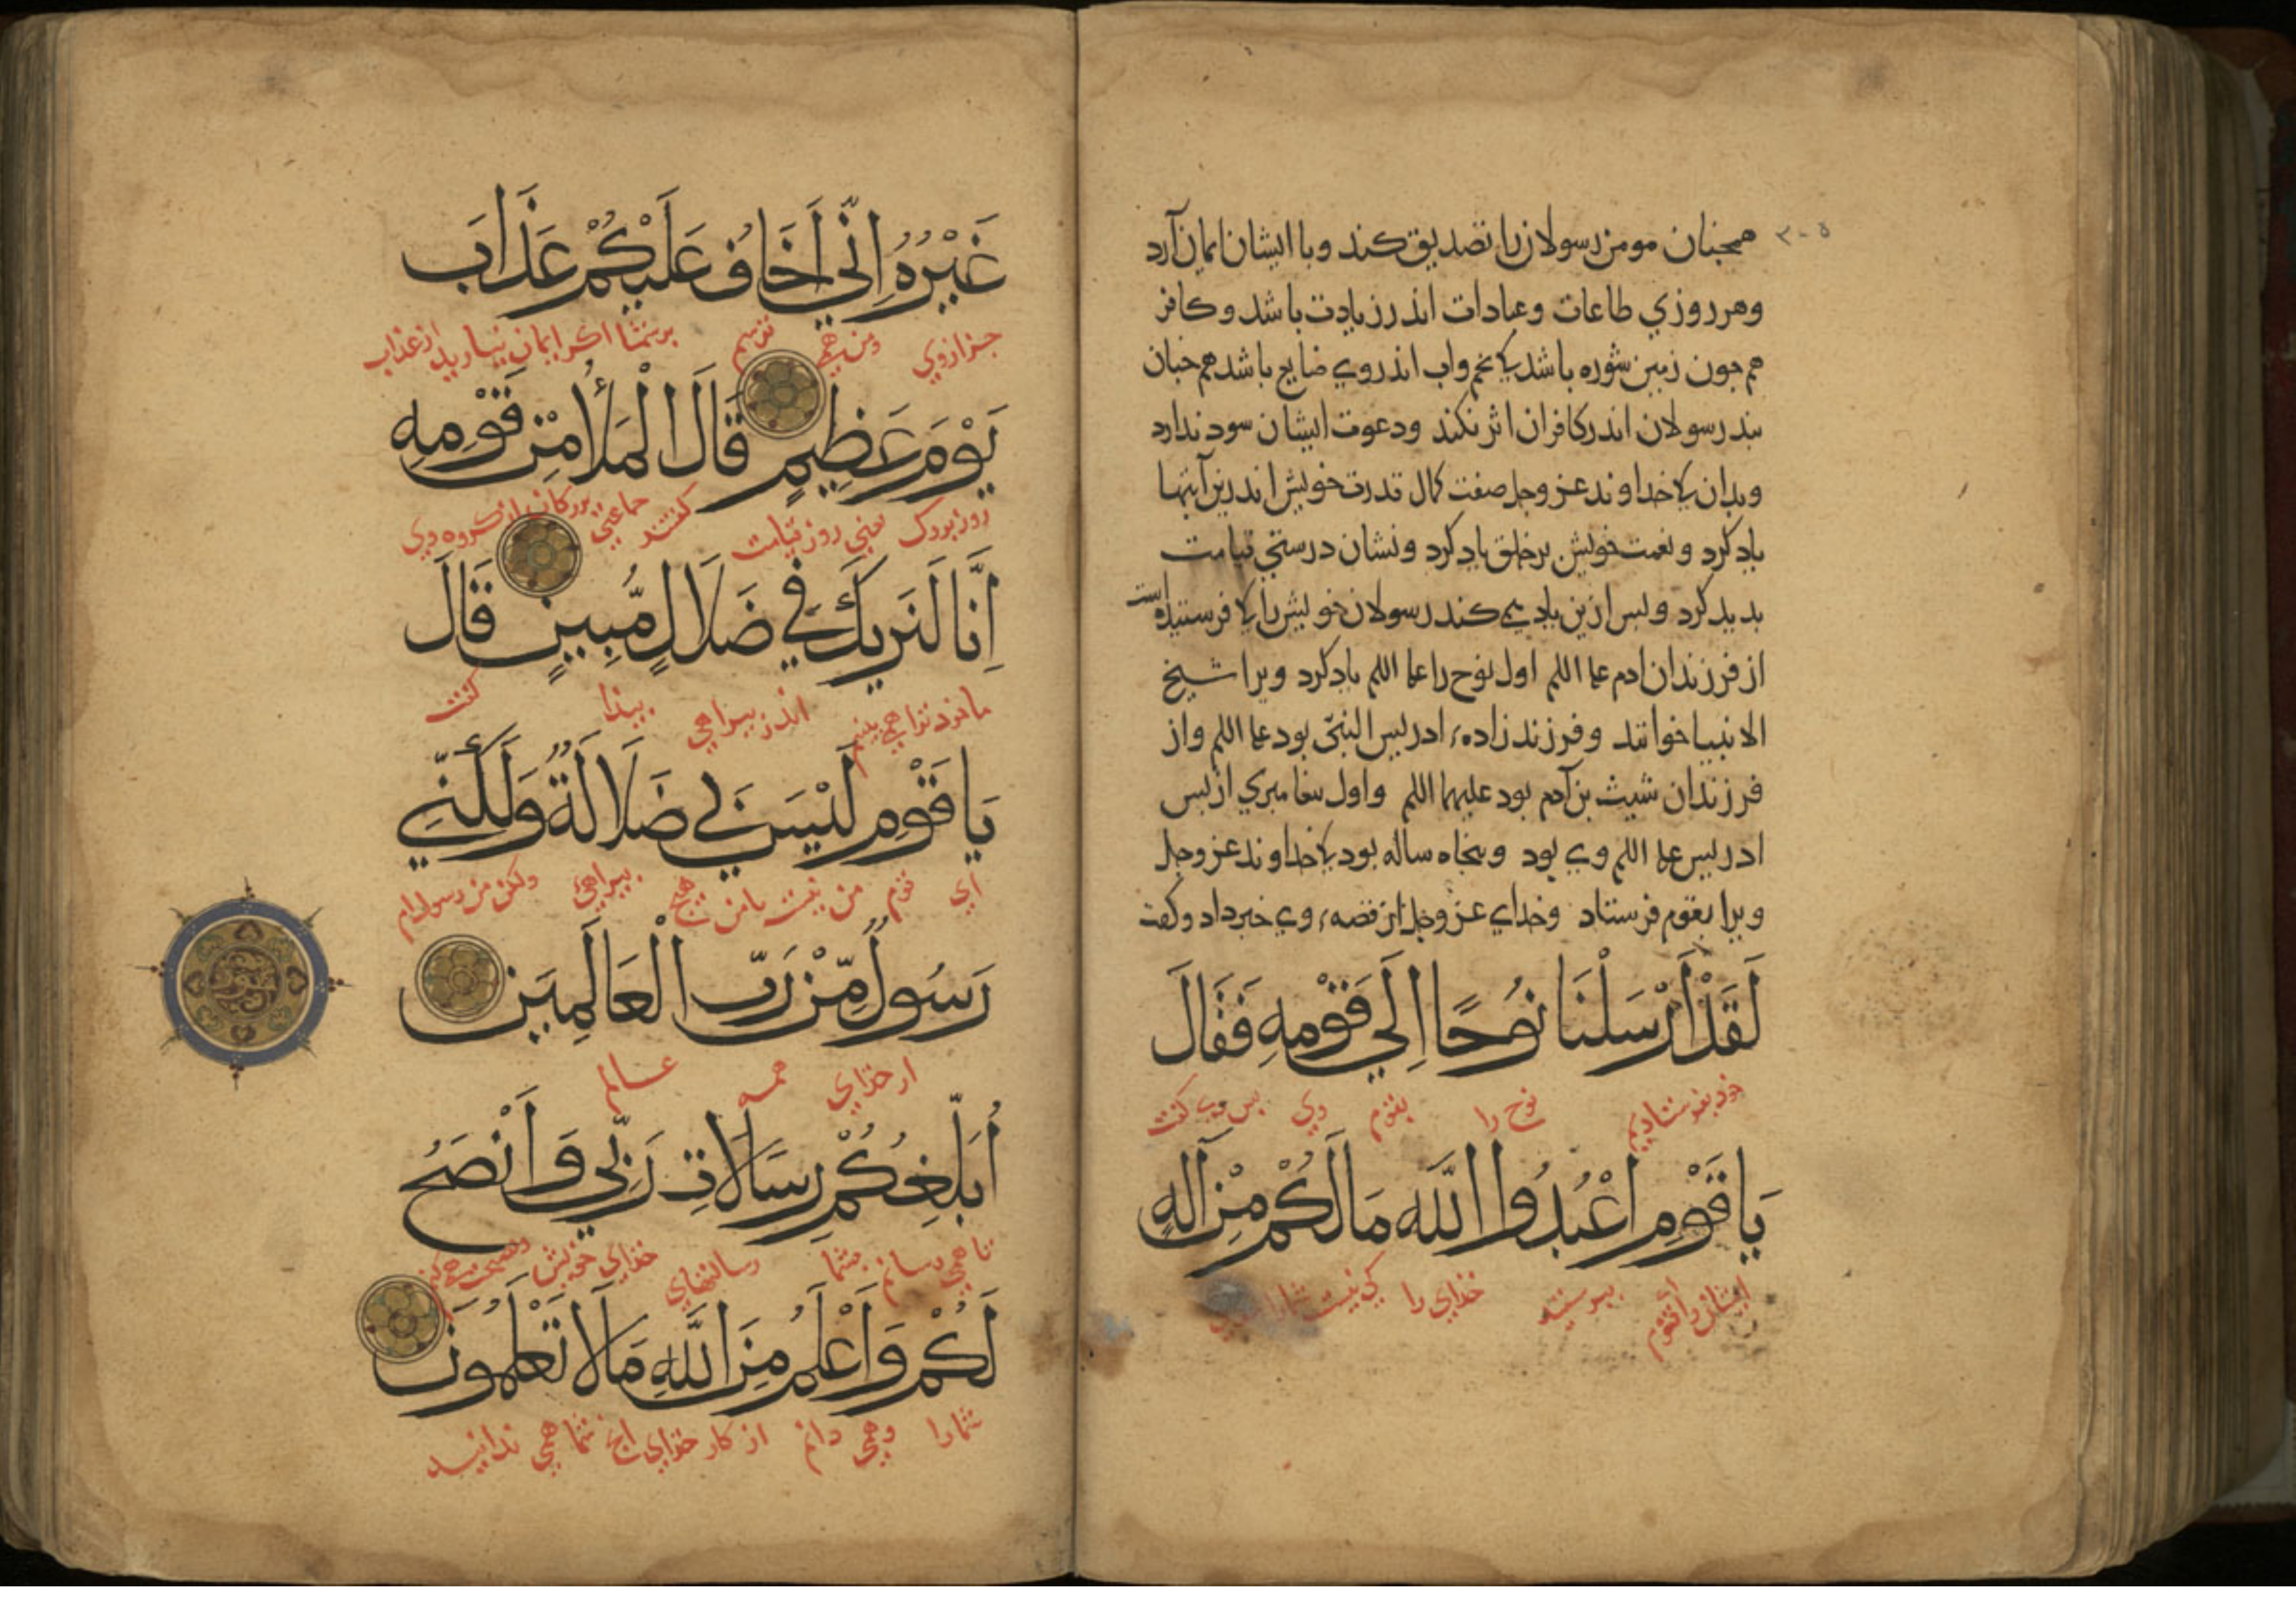 همچنان مومن رسولان را تصدیق کند وبا ایشان ایمان آرد
۳۰۵
وهر روزي طاعات وعبادات اندر زیادت باشد و کافر
هم جون زمین شوره باشد کی تخم واب اندروي ضایع باشد هم جنان
بند رسولان اندر کافران اثر نکند ودعوت ایشان سود ندارد
وبدان کی خداوند عز وجل صفت کمال قدرت خویش اندرین آیتها
یاد کرد و نعمت خویش بر خلق یاد کرد ونشان درستي قیامت
بدید کرد وبس ازین یاد می کند رسولان خویش را کی فرستیده است
از فرزندان ادم علم اللم اول نوح را علم اللم یاد کرد ویرا شیخ
الانبیا خوانند وفرزند زادهٔ ادریس النبیّ بود علم اللم واز
فرزندان شیث بن آدم بود علیهما اللم واول بیغامبري از بس
ادریس علم اللم وي بود وبنجاه ساله بود کی خداوند عز وجل
ویرا بقوم فرستاد وخداي عز وجل از قصهٔ وي خبر داد وکفت
لَقَدْ أَرْسَلْنَا نُوحًا اِلَي قَوْمِهِ فَقَالَ
خود بفرستادیم نوح را بقوم وي بس وي کفت
يَا قَوْمِ اعْبُدُوا اللَّهَ مَا لَكُمْ مِنْ آلَهٍ
اي قوم ببرستید خداي را کي نیست شمارا
غَيْرُهُ اِنِّي اَخَافُ عَلَيْكُمْ عَذَابَ
جز از وي ومن همي ترسم برشما اکر ایمان نیارید از عذاب
يَوْمٍ عَظِيمٍ قَالَ الْمَلَأُ مِنْ قَوْمِهِ
روز بزرک یعني روز قیامت کفتند جماعتي بزرکان از کروه وي
اِنَّا لَنَرَيكَ فِي ضَلَالٍ مُّبِينٍ قَالَ
ما خود ترا همي بینیم اندر بیراهي بیدا کفت
يَا قَوْمِ لَيْسَ بِي ضَلَالَةٌ وَلَكِنِّي
اي قوم من نیست با من هیج بیراهي ولکن من رسول ام
رَسُولٌ مِّنْ رَبِّ الْعَالَمِينَ
از خداي همه عالم
اُبَلِّغُكُمْ رِسَالَاتِ رَبِّي وَاَنْصَحُ
تا همي رسانم بشما رسالتهاي خداي خویش ونصیحت همي کنم
لَكُمْ وَاَعْلَمُ مِنَ اللَّهِ مَا لَا تَعْلَمُونَ
شمارا وهمي دانم از کار خداي انج شما همي ندانید